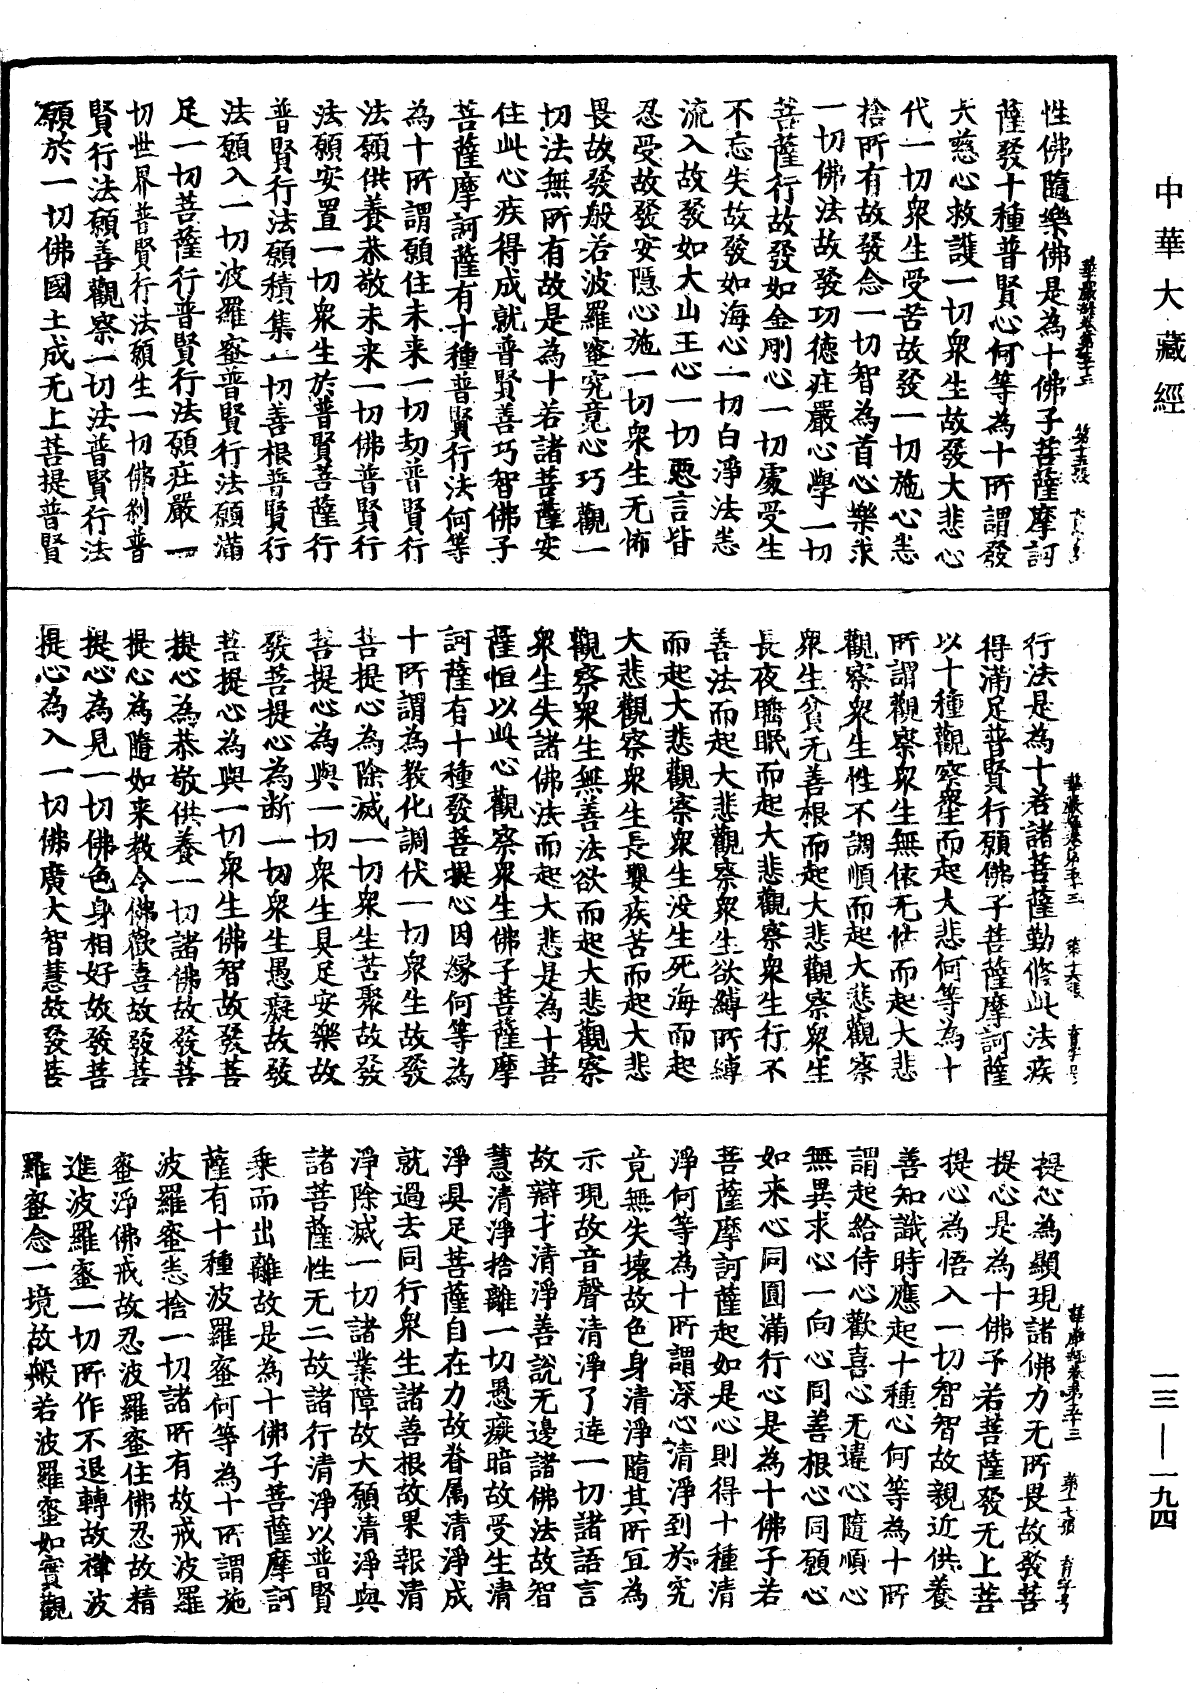 中華大藏經
性佛隨樂佛是為十佛子菩薩摩訶
薩發十種普賢心何等為十所謂發
大慈心救護一切衆生故發大悲心
代一切衆生受苦故發一切施心悉
捨所有故發念一切智為首心樂求
一切佛法故發功德莊嚴心學一切
菩薩行故發如金剛心一切處受生
不忘失故發如海心一切白淨法悉
流入故發如大山王心一切惡言皆
忍受故發安隱心施一切衆生无怖
畏故發般若波羅蜜究竟心巧觀一
切法無所有故是為十若諸菩薩安
住此心疾得成就普賢善巧智佛子
菩薩摩訶薩有十種普賢行法何等
為十所謂願住未来一切劫普賢行
法願供養恭敬未来一切佛普賢行
法願安置一切衆生於普賢菩薩行
普賢行法願積集一切善根普賢行
法願入一切波羅蜜普賢行法願滿
足一切菩薩行普賢行法願莊嚴一
切世界普賢行法願生一切佛刹普
賢行法願善觀察一切法普賢行法
願於一切佛國土成无上菩提普賢
行法是為十若諸菩薩勤修此法疾
得滿足普賢行願佛子菩薩摩訶薩
以十種觀察衆生而起大悲何等為十
所謂觀察衆生無依无怙而起大悲
觀察衆生性不調順而起大悲觀察
衆生貧无善根而起大悲觀察衆生
長夜睡眠而起大悲觀察衆生行不
善法而起大悲觀察衆生欲縛所縛
而起大悲觀察衆生没生死海而起
大悲觀察衆生長嬰疾苦而起大悲
觀察衆生無善法欲而起大悲觀察
衆生失諸佛法而起大悲是為十菩
薩恒以此心觀察衆生佛子菩薩摩
訶薩有十種發菩提心因緣何等為
十所謂為教化調伏一切衆生故發
菩提心為除滅一切衆生苦聚故發
菩提心為與一切衆生具足安樂故
發菩提心為断一切衆生愚癡故發
菩提心為與一切衆生佛智故發菩
提心為恭敬供養一切諸佛故發菩
提心為隨如来教令佛歡喜故發菩
提心為見一切佛色身相好故發菩
提心為入一切佛廣大智慧故發菩
提心為顯現諸佛力无所畏故發菩
提心是為十佛子若菩薩發无上菩
提心為悟入一切智智故親近供養
善知識時應起十種心何等為十所
謂起給侍心歡喜心无違心隨順心
無異求心一向心同善根心同願心
如来心同圓滿行心是為十佛子若
菩薩摩訶薩起如是心則得十種清
淨何等為十所謂深心清淨到於究
竟無失壞故色身清淨隨其所宜為
示現故音聲清淨了達一切諸語言
故辯才清淨善說无邊諸佛法故智
慧清淨捨離一切愚癡暗故受生清
淨具足菩薩自在力故眷属清淨成
就過去同行衆生諸善根故果報清
淨除滅一切諸業障故大願清淨與
諸菩薩性无二故諸行清淨以普賢
乗而出離故是為十佛子菩薩摩訶
薩有十種波羅蜜何等為十所謂施
波羅蜜悉捨一切諸所有故戒波羅
蜜淨佛戒故忍波羅蜜住佛忍故精
進波羅蜜一切所作不退轉故禪波
羅蜜念一境故般若波羅蜜如實觀
一三—一九四